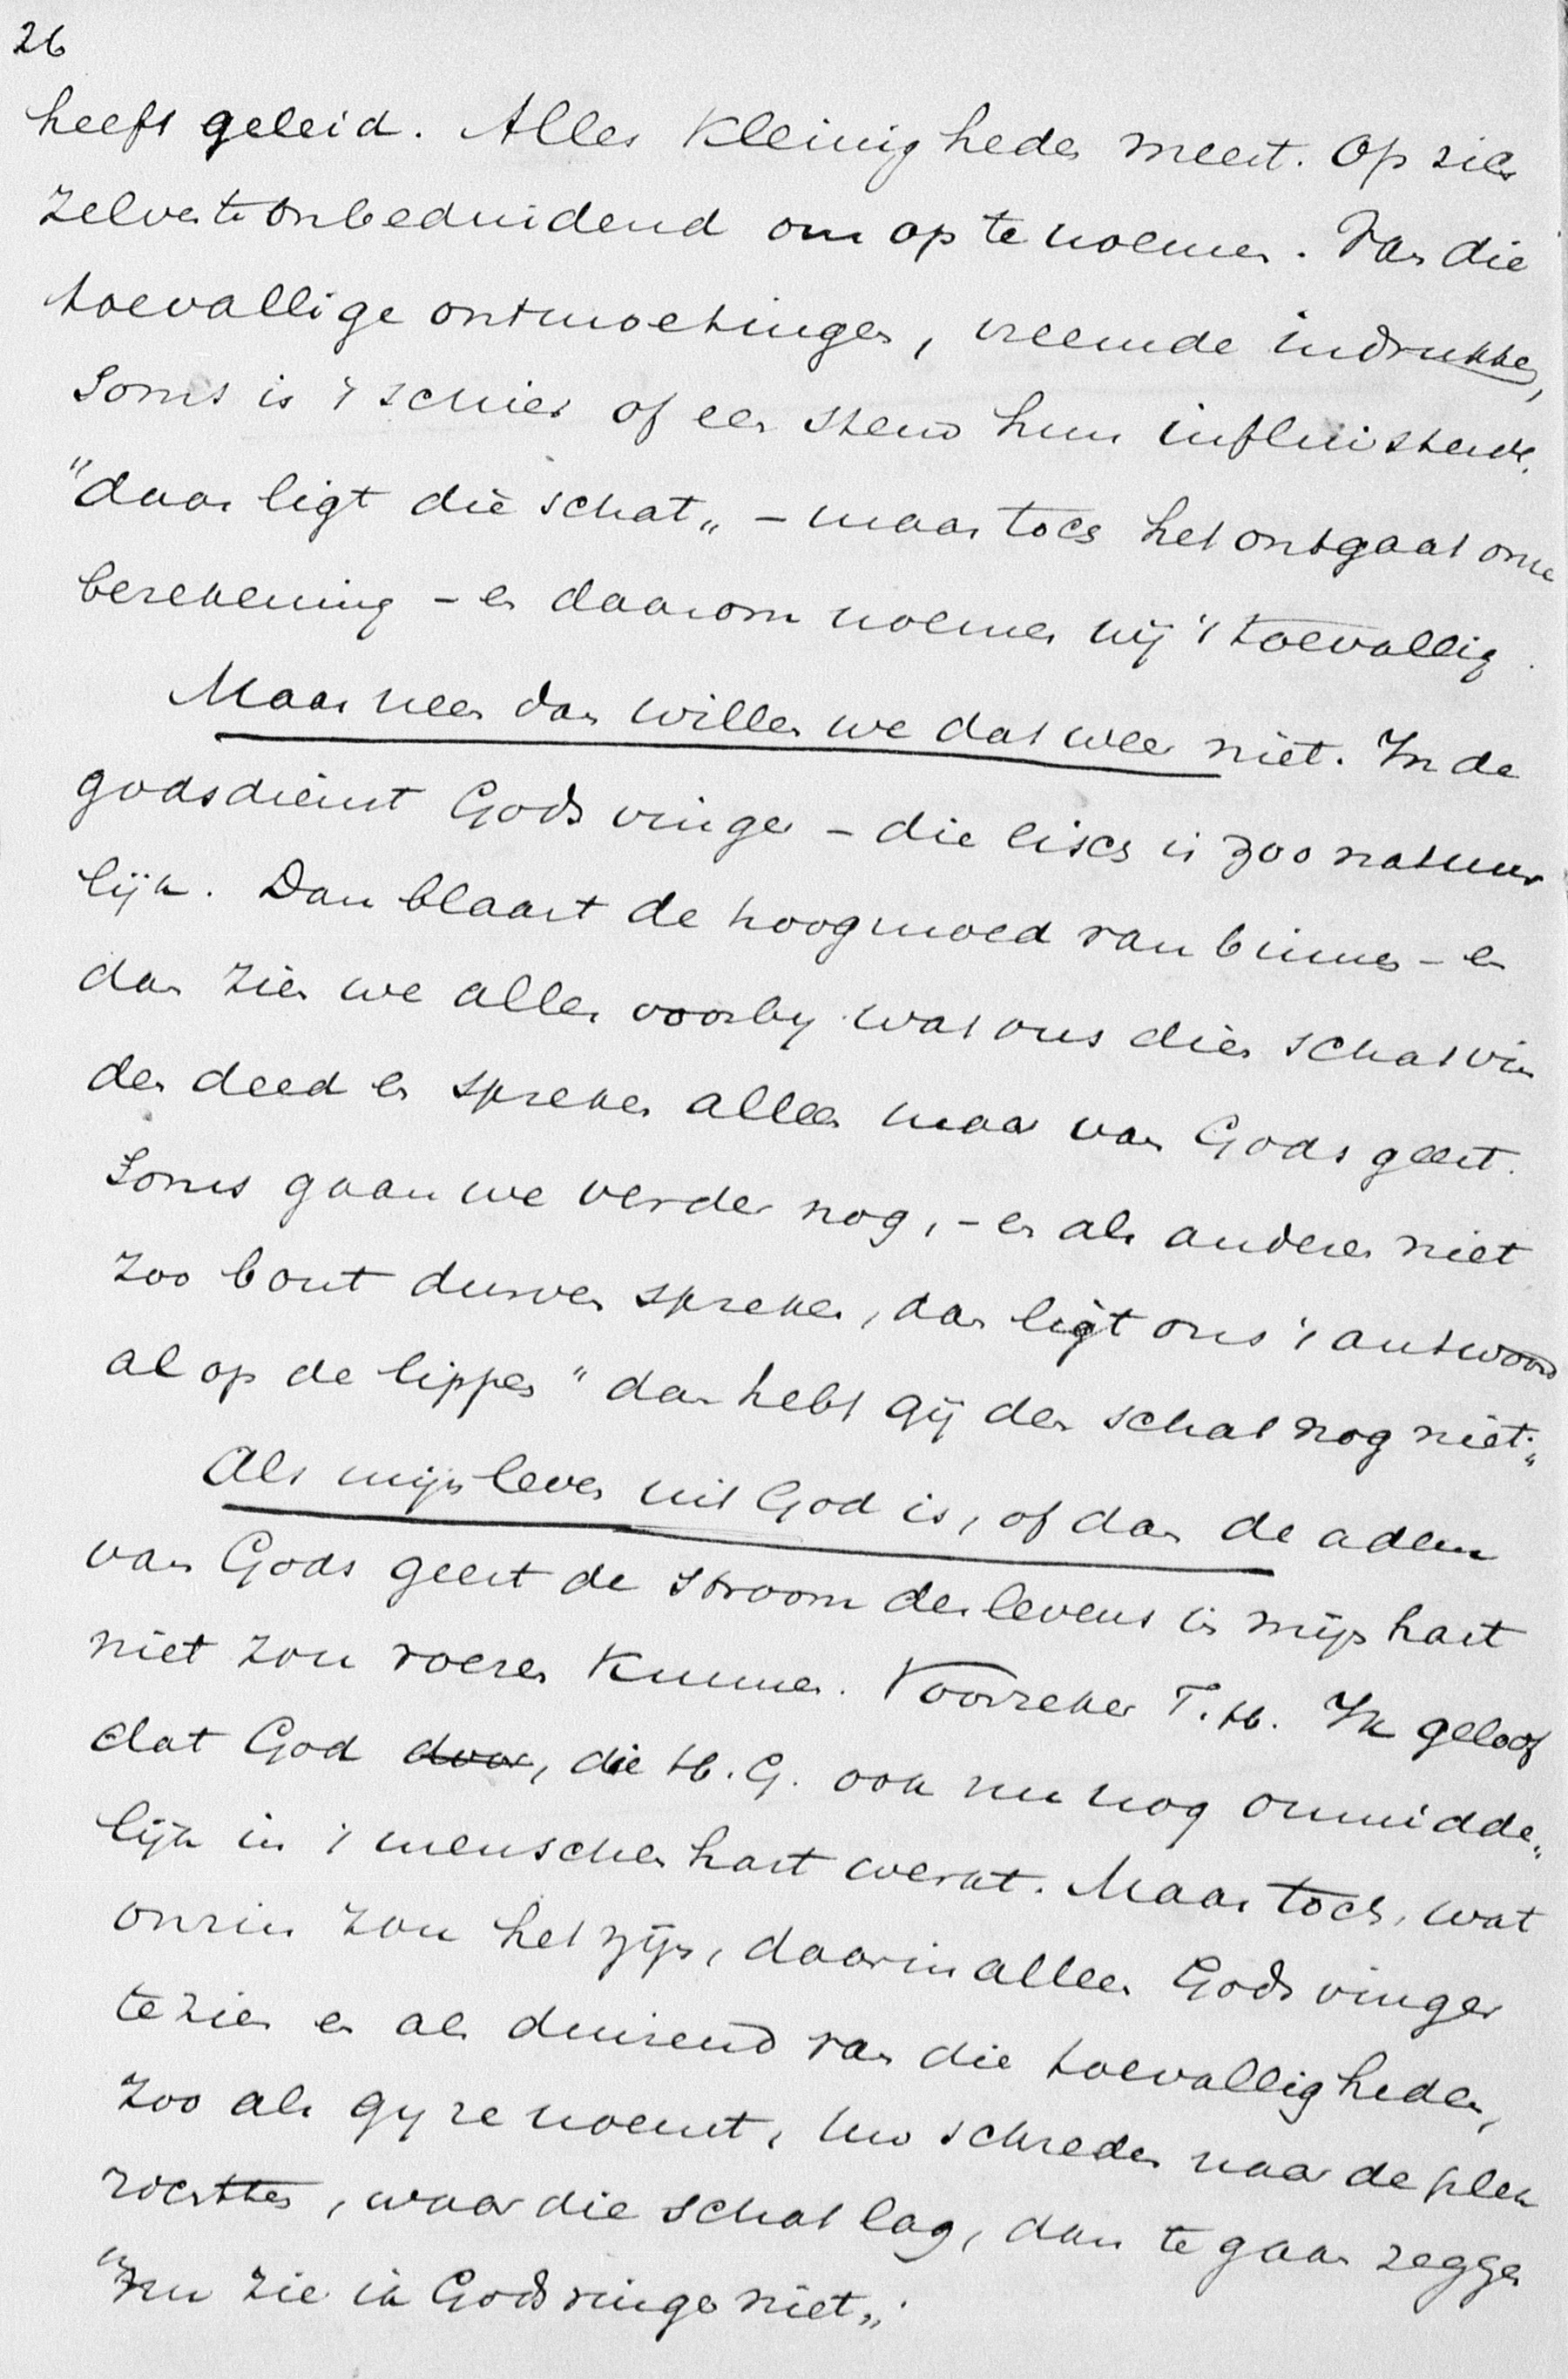 26
heeft geleid. Alles kleinigheden meest. Op zich
zelve te onbeduidend om op te noemen. Van die
toevallige ontmoetingen, vreemde indrukken,
Soms is 't schier of een stem hun influisterde.
"daar ligt die schat„ - maar toch het ontgaat onze
berekening - en daarom noemen wij 't toevallig.
Maar neen dan willen we dat weer niet. In de
godsdienst Gods vinger - die eisch is zoo natuur
lijk. Dan blaast de hoogmoed van binnen - en
dan zien we alles voorby wat ons dien schat vin
den deed en spreken alleen maar van Gods geest.
Soms gaan we verder nog, - en als anderen niet
zoo bout durven spreken, dan ligt ons 't antwoord
al op de lippen "dan hebt gij den schat nog niet.„
Als mijn leven uit God is, of dan de adem
van Gods geest de stroom des levens in mijn hart
niet zou roeren kunnen. Voorzeker T.H. Ik geloof
dat God door, die H.G. ook nu nog onmidde„
lijk in 't menschen hart werkt. Maar toch, wat
onzin zou het zijn, daarin alleen Gods vinger
te zien en als duizend van die toevalligheden,
zoo als gy ze noemt, uw schreden naar de plek
richtten, waar die schat lag, dan te gaan zeggen
"nu zie ik Gods vinger niet„.